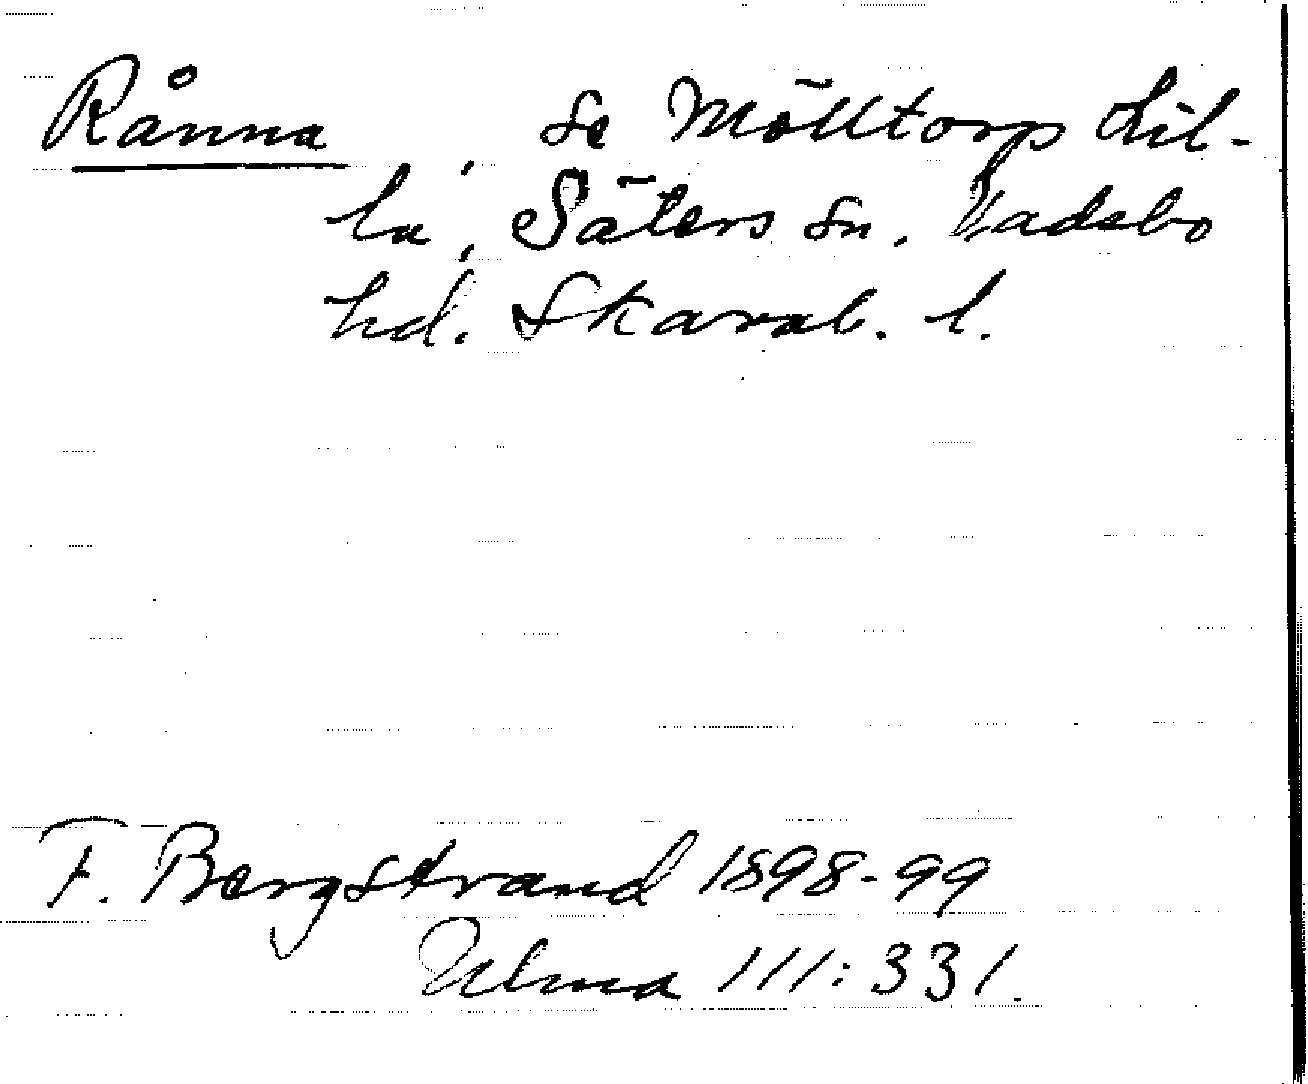 Rånna, se Mölltorp Lil-
la, Säters sn. Vadsbo
hd. Skarab. l.
F. Bergstrand 1898-99
Ulma 111:331.